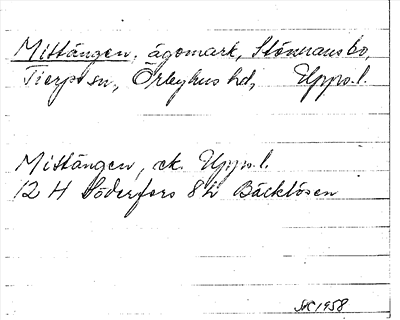 Mittängen, ägomark, Stönnansbo,
Tierps sn, Örbyhus hd, Upps. l.
Mittängen, ek. Upps. l.
12 H Söderfors 8 h Bäcklösen
1958